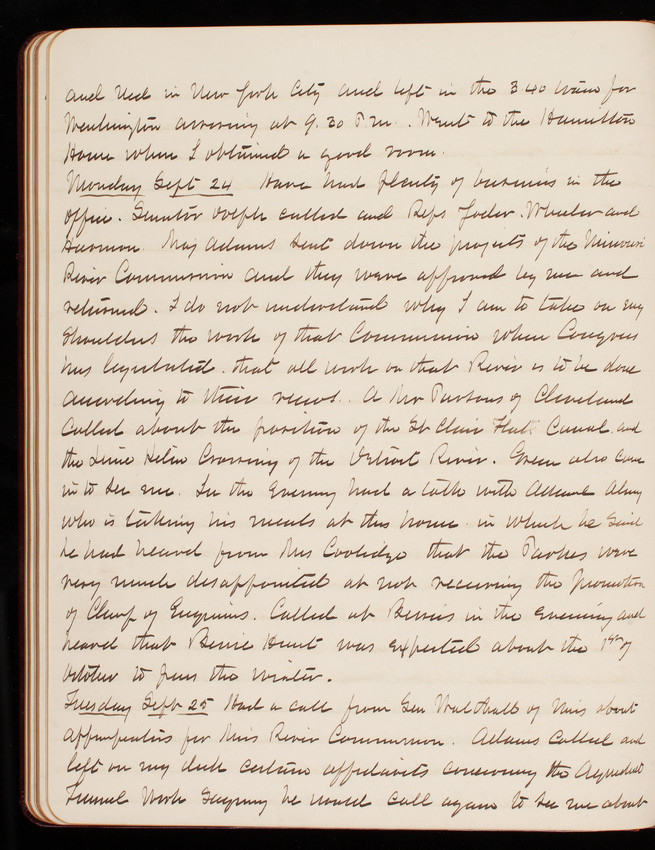 and Ned in New York City and left in the 3 40 train for
Washington arriving at 9.30 P.M. Went to the Hamilton
House where I obtained a good room.
Monday Sept 24 Have had plenty of business in the
office. Senator Dolph called and Reps Yoder, Wheeler and
Harmon. Maj Adams sent down the projects of the Missouri
River Commission and they were approved by me and
returned. I do not understand why I am to take on my
shoulders the work of that Commission when Congress
has legislated that all work on that River is to be done
according to their views. A Mr Parsons of Cleveland
called about the position of the St Clair Flats Canal and
the Lime Kiln Crossing of the Detroit River. Green also came
in to see me. In the Evening had a talk with
who is taking his meals at this house in which he said
he had heard from Mrs Coolidge that the Parkes were
very much disappointed at not receiving the promotion
of Chief of Engineers. Called at in the evening and
heard that Hunt was expected about the 1st of
October to pass the winter.
Tuesday Sept 25 Had a call from Gen Walthall of Miss about
appropriations for Miss River Commission. Adams called and
left on my desk certain affidavits concerning the Aqueduct
Tunnel Work saying he would call again to see me about